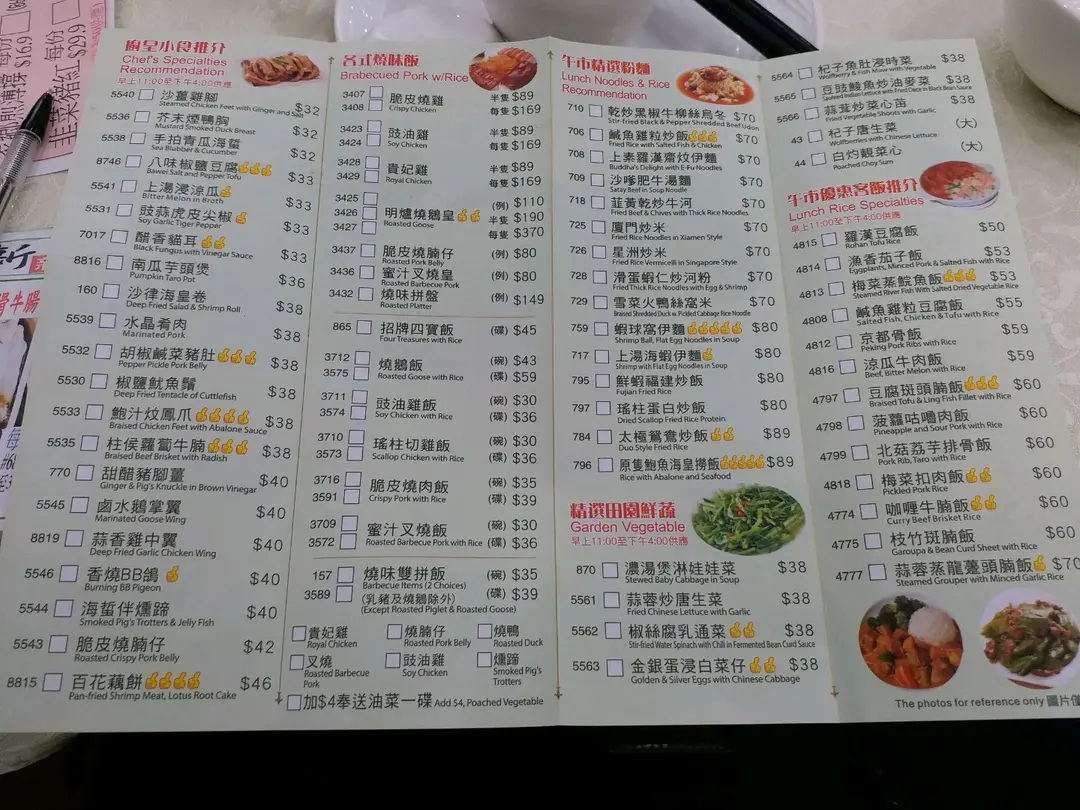 廚皇小食推介
Chef's Specialties
Recommendation
早上11:00至下午4:00供應
5540 沙薑雞腳 $32
Steamed Chicken Feet with Ginger and Salt
5536 芥末煙鴨胸 $32
Mustard Smoked Duck Breast
5538 手拍青瓜海蜇 $32
Sea Blubber & Cucumber
8746 八味椒鹽豆腐 $33
Bawei Salt and Pepper Tofu
5541 上湯浸涼瓜 $33
Bitter Melon in Broth
5531 豉蒜虎皮尖椒 $33
Soy Garlic Tiger Pepper
7017 醋香貓耳 $33
Black Fungus with Vinegar Sauce
8816 南瓜芋頭煲 $36
Pumpkin Taro Pot
160 沙律海皇卷 $38
Deep Fried Salad & Shrimp Roll
5539 水晶肴肉 $38
Marinated Pork
5532 胡椒鹹菜豬肚 $38
Pepper Pickle Pork Belly
5530 椒鹽魷魚鬚 $38
Deep Fried Tentacle of Cuttlefish
5533 鮑汁炆鳳爪 $38
Braised Chicken Feet with Abalone Sauce
5535 柱侯蘿蔔牛腩 $38
Braised Beef Brisket with Radish
770 甜醋豬腳薑 $40
Ginger & Pig's Knuckle in Brown Vinegar
5545 鹵水鵝掌翼 $40
Marinated Goose Wing
8819 蒜香雞中翼 $40
Deep Fried Garlic Chicken Wing
5546 香燒BB鴿 $40
Burning BB Pigeon
5544 海蜇伴燻蹄 $40
Smoked Pig's Trotters & Jelly Fish
5543 脆皮燒腩仔 $42
Roasted Crispy Pork Belly
8815 百花藕餅 $46
Pan-fried Shrimp Meat, Lotus Root Cake
各式燒味飯
Brabecued Pork w/Rice
3407 脆皮燒雞 半隻 $89
3408 Crispy Chicken 每隻 $169
3423 豉油雞 半隻 $89
3424 Soy Chicken 每隻 $169
3428 貴妃雞 半隻 $89
3429 Royal Chicken 每隻 $169
3425 (例) $110
3426 明爐燒鵝皇 半隻 $190
3427 Roasted Goose 每隻 $370
3437 脆皮燒腩仔 (例) $80
Roasted Pork Belly
3436 蜜汁叉燒皇 (例) $80
Roasted Barbecue Pork
3432 燒味拼盤 (例) $149
Roasted Platter
865 招牌四寶飯 (碟) $45
Four Treasures with Rice
3712 燒鵝飯 (碗) $43
3575 Roasted Goose with Rice (碟) $59
3711 豉油雞飯 (碗) $30
3574 Soy Chicken with Rice (碟) $36
3710 瑤柱切雞飯 (碗) $30
3573 Scallop Chicken with Rice (碟) $36
3716 脆皮燒肉飯 (碗) $35
3591 Crispy Pork with Rice (碟) $39
3709 蜜汁叉燒飯 (碗) $30
3572 Roasted Barbecue Pork with Rice (碟) $36
157 燒味雙拼飯 (碗) $35
Barbecue Items (2 Choices)
3589 (乳豬及燒鵝除外) (碟) $39
(Except Roasted Piglet & Roasted Goose)
貴妃雞 燒腩仔 燒鴨
Royal Chicken Roasted Pork Belly Roasted Duck
叉燒 豉油雞 燻蹄
Roasted Barbecue Pork Soy Chicken Smoked Pig's Trotters
加$4奉送油菜一碟 Add $4, Poached Vegetable
午市精選粉麵
Lunch Noodles & Rice
Recommendation
710 乾炒黑椒牛柳絲烏冬 $70
Stir-fried Black & Pepper Shredded Beef Udon
706 鹹魚雞粒炒飯 $70
Fried Rice with Salted Fish & Chicken
708 上素羅漢齋炆伊麵 $70
Buddha's Delight with E-Fu Noodles
709 沙嗲肥牛湯麵 $70
Satay Beef in Soup Noodle
718 韮黃乾炒牛河 $70
Fried Beef & Chives with Thick Rice Noodles
725 廈門炒米 $70
Fried Rice Noodles in Xiamen Style
726 星洲炒米 $70
Fried Rice Vermicelli in Singapore Style
728 滑蛋蝦仁炒河粉 $70
Fried Thick Rice Noodles with Egg & Shrimp
729 雪菜火鴨絲窩米 $70
Braised Shredded Duck w. Pickled Cabbage Rice Noodle
759 蝦球窩伊麵 $80
Shrimp Ball, Flat Egg Noodles in Soup
717 上湯海蝦伊麵 $80
Shrimp with Flat Egg Noodles in Soup
795 鮮蝦福建炒飯 $80
Fujian Fried Rice
797 瑤柱蛋白炒飯 $80
Dried Scallop Fried Rice Protein
784 太極鴛鴦炒飯 $89
Duo Style Fried Rice
796 原隻鮑魚海皇撈飯 $89
Rice with Abalone and Seafood
精選田園鮮蔬
Garden Vegetable
早上11:00至下午4:00供應
870 濃湯煲淋娃娃菜 $38
Stewed Baby Cabbage in Soup
5561 蒜蓉炒唐生菜 $38
Fried Chinese Lettuce with Garlic
5562 椒絲腐乳通菜 $38
Stir-fried Water Spinach with Chili in Fermented Bean Curd Sauce
5563 金銀蛋浸白菜仔 $38
Golden & Silver Eggs with Chinese Cabbage
5564 杞子魚肚浸時菜 $38
Wolfberry & Fish Maw with Vegetable
5565 豆豉鯪魚炒油麥菜 $38
Sauteed Indian Lettuce with Fried Dace in Black Bean Sauce
5566 蒜茸炒菜心苗 $38
Fried Vegetable Shoots with Garlic
43 杞子唐生菜 (大)
Wolfberries with Chinese Lettuce
44 白灼靚菜心 (大)
Poached Choy Sum
午市優惠客飯推介
Lunch Rice Specialties
早上11:00至下午4:00供應
4815 羅漢豆腐飯 $50
Rohan Tofu Rice
4814 漁香茄子飯 $53
Eggplants, Minced Pork & Salted Fish with Rice
4813 梅菜蒸鯇魚飯 $53
Steamed River Fish With Salted Dried Vegetable Rice
4808 鹹魚雞粒豆腐飯 $55
Salted Fish, Chicken & Tofu with Rice
4812 京都骨飯 $59
Peking Pork Ribs with Rice
4816 涼瓜牛肉飯 $59
Beef, Bitter Melon with Rice
4797 豆腐斑頭腩飯 $60
Braised Tofu & Ling Fish Fillet with Rice
4798 菠蘿咕嚕肉飯 $60
Pineapple and Sour Pork with Rice
4799 北菇荔芋排骨飯 $60
Pork Rib, Taro with Rice
4818 梅菜扣肉飯 $60
Pickled Pork Rice
4774 咖喱牛腩飯 $60
Curry Beef Brisket Rice
4775 枝竹斑腩飯 $60
Garoupa & Bean Curd Sheet with Rice
4777 蒜蓉蒸龍躉頭腩飯 $70
Steamed Grouper with Minced Garlic Rice
The photos for reference only 圖片僅